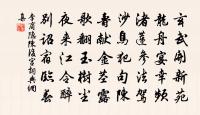 玄武開新苑
龍舟宴幸頻
渚蓮參法駕
沙鳥犯勾陳
壽獻金莖露
歌翻玉樹塵
夜來江令醉
別詔宿臨春
李商隱陳後宮詞典網
集